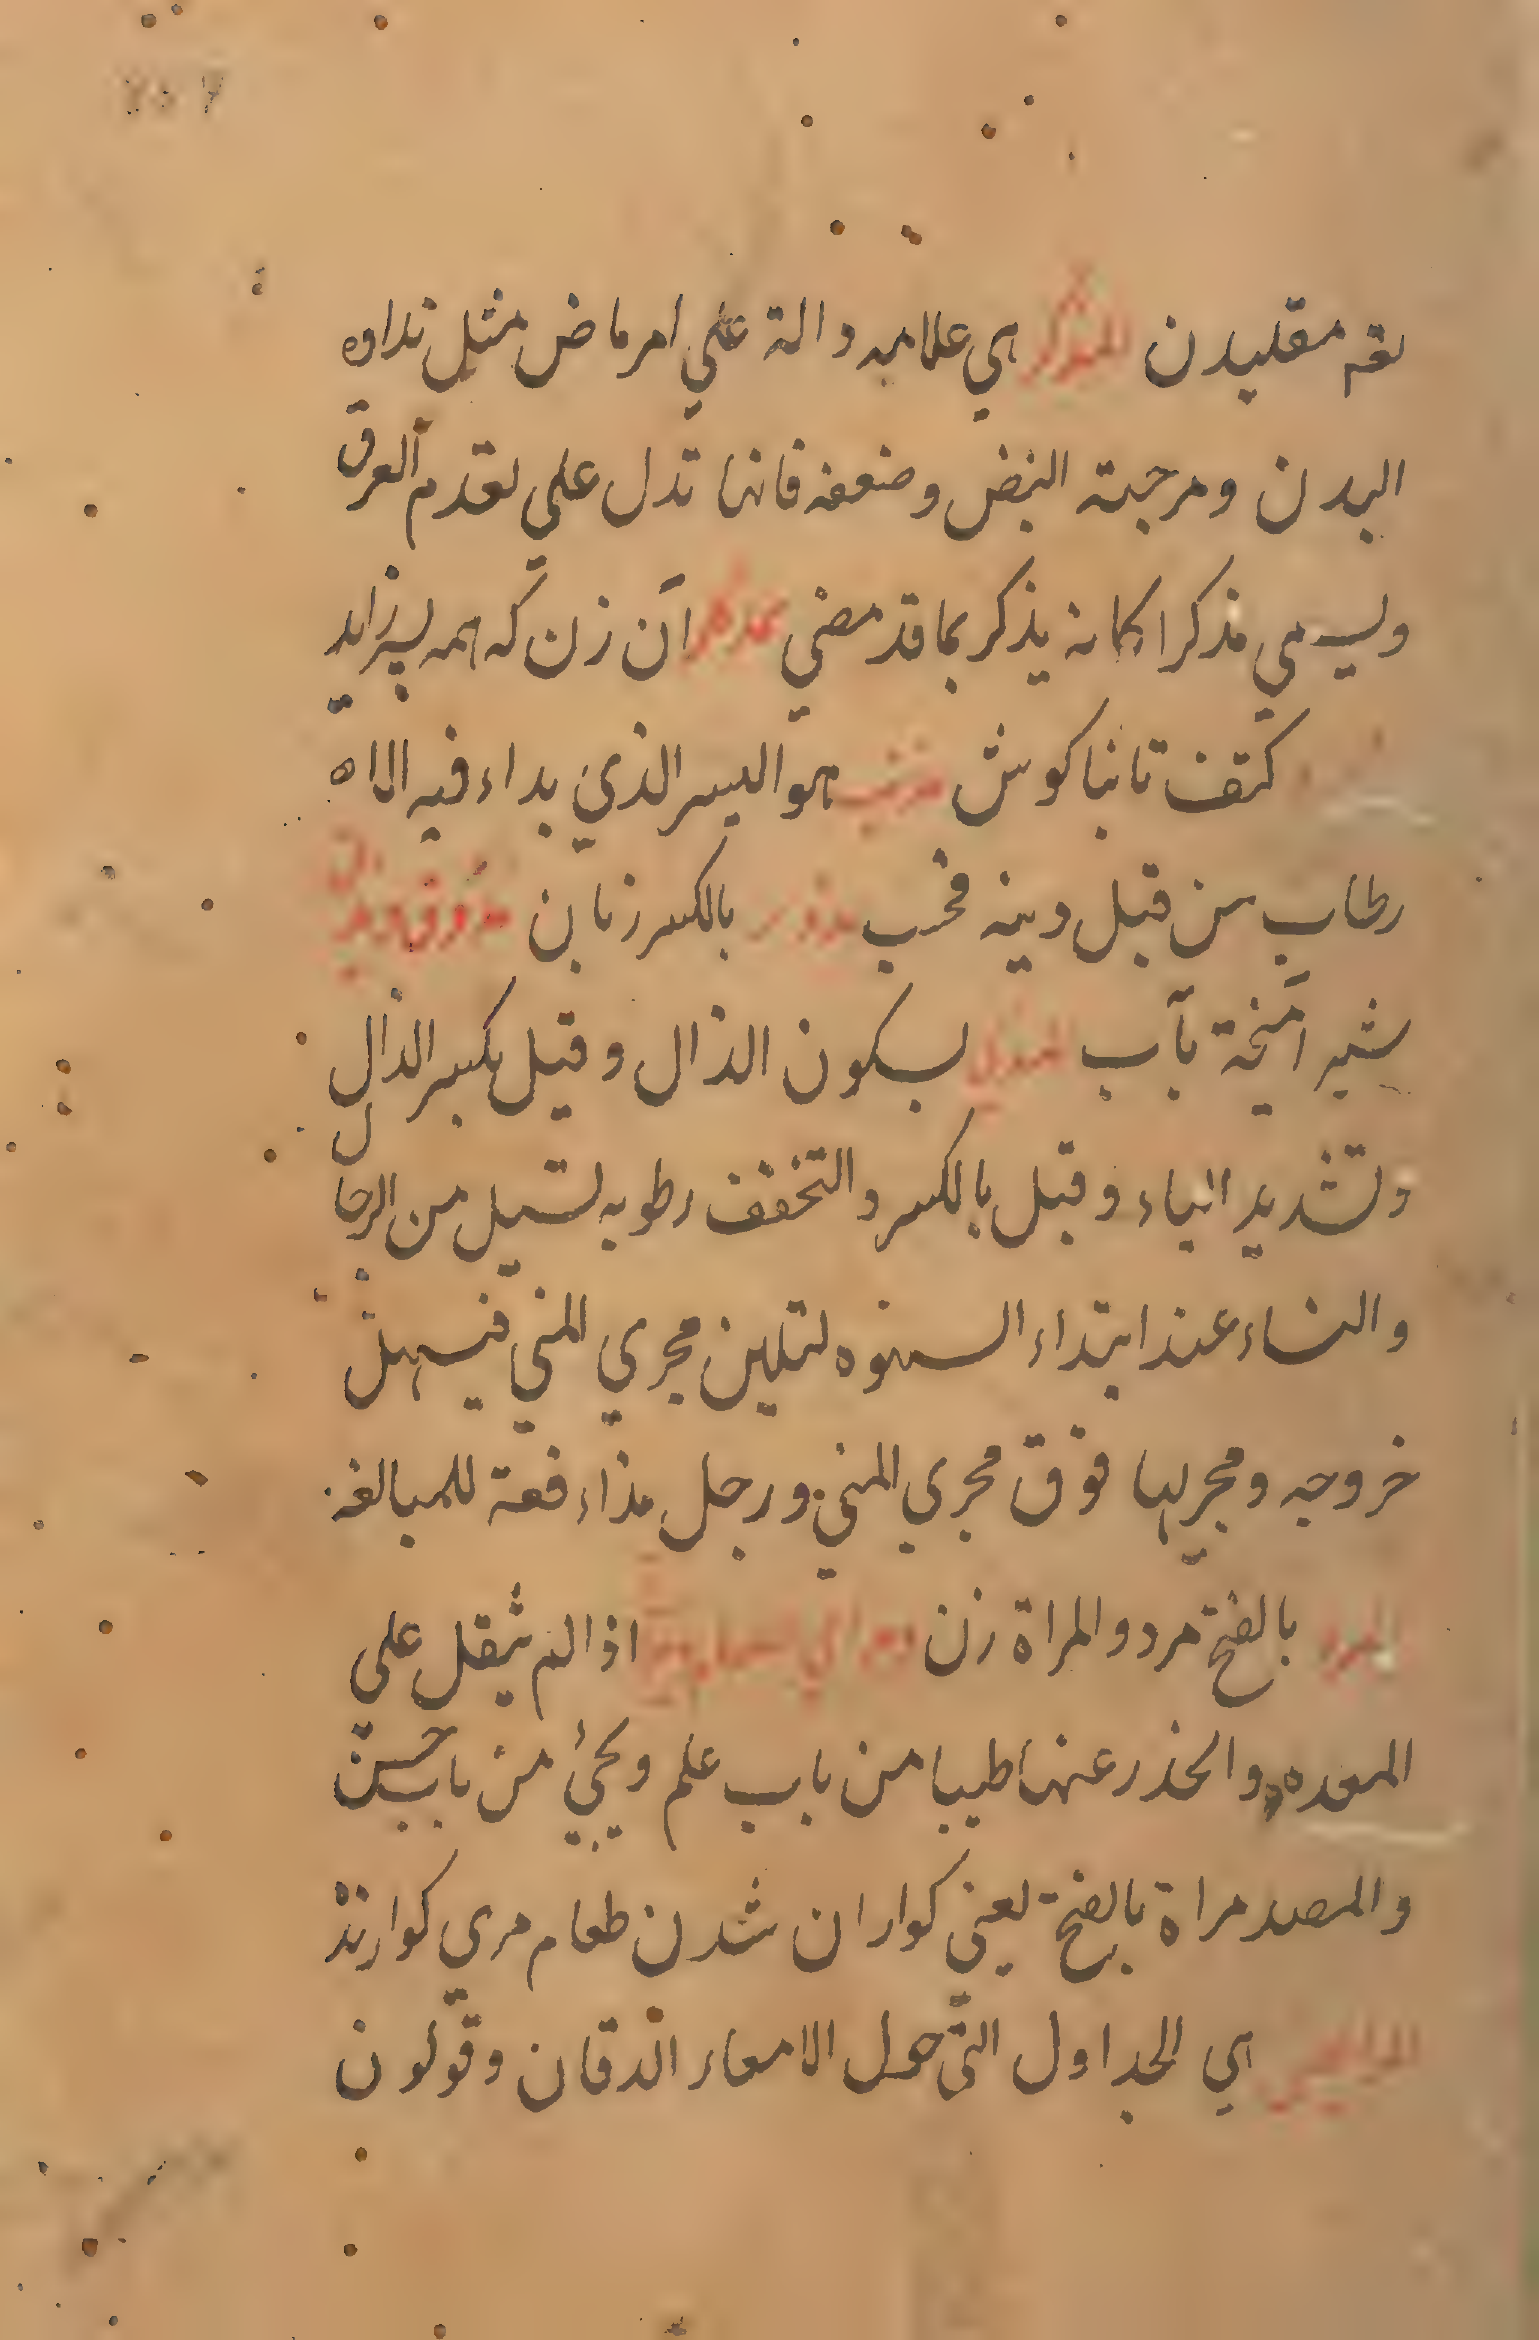 لغم مقليدن المذكر هي علامه دالة علي امر ماض مثل نداوه
البدن و مرجية النبض و ضعفه فانها تدل علي تقدم العرق
ويسمي مذكرا كانه يذكر بما قد مضي آن زن كه همه پسر زايد
كتف تا بناكوش مذنب هو البسر الذي بداء فيه الا
رطاب من قبل دنبه فحسب بالكسر زنان
شير آميخة بآب المذي بسكون الذال و قيل بكسر الذال
وتشديد الياء و قيل بالكسر و التخفف رطوبه تسيل من الرجال
والنساء عند ابتداء السهوه لتلين مجري المني فيسهل
خروجه و مجريها فوق مجري المني و رجل مذاء فعة للمبالغه
المرء بالفتح مرد و المراة زن اذا لم يثقل علي
المعده والحذر عنها طيبا من باب علم ويجئ من باب حسن
والمصدر مراة بالفتح يعني كواران شدن طعام مري كوارنده
اي الجداول التي حول الامعاء الدقان و قولون